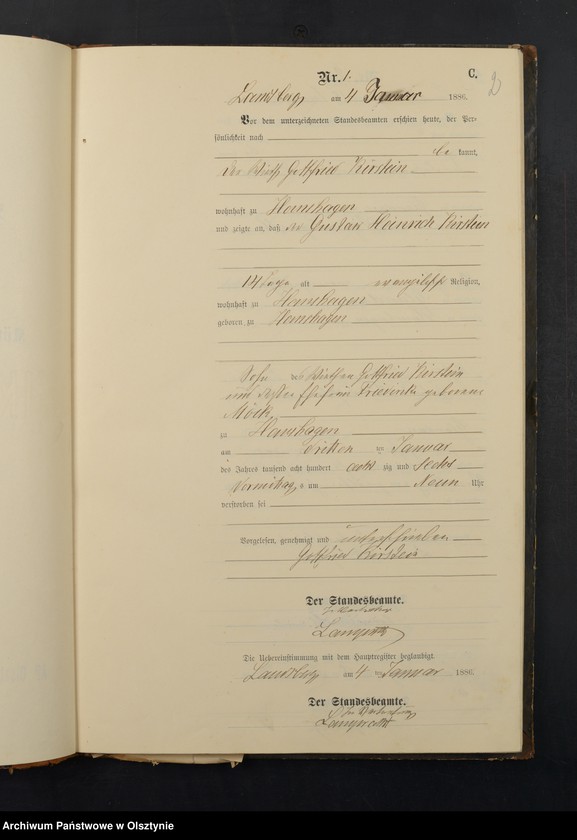 Nr. 1.
C.
2
Landsberg am 4 Januar 1886.
Vor dem unterzeichneten Standesbeamten erschien heute, der Per-
sönlichkeit nach
be kannt,
der Wirth Gottfried Kirstein
wohnhaft zu Hanshagen
und zeigte an, daß der Gustav Heinrich Kirstein
14 Tage alt evangelisch Religion,
wohnhaft zu Hanshagen
geboren zu Hanshagen
Sohn des Wirthen Gottfried Kirstein
und dessen Ehefrau geborene
Möck,
zu Hanshagen
am dritten ten Januar
des Jahres tausend acht hundert acht zig und sechs
Vormittag s um Neun Uhr
verstorben sei
Vorgelesen, genehmigt und unterschrieben
Gottfried Kirstein
Der Standesbeamte.
In Vertretung
Die Uebereinstimmung mit dem Hauptregister beglaubigt
Landsberg am 4 ten Januar 1886.
Der Standesbeamte.
In Vertretung
Archiwum Państwowe w Olsztynie